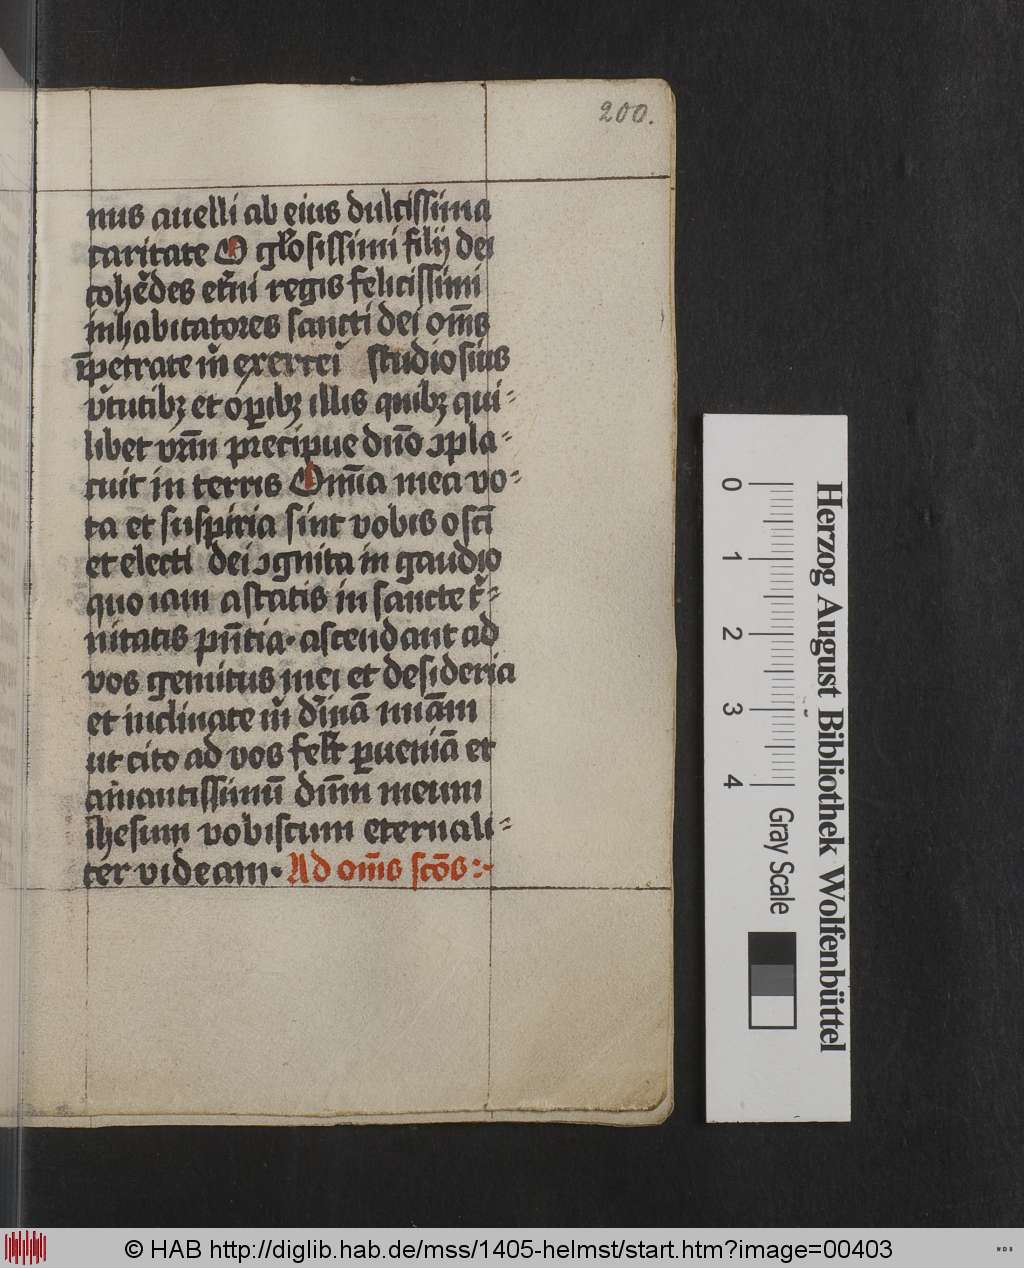 200.
nus auelli ab eius dulcissima
caritate O gl'osissimi filij dei
cohẽdes et'ni regis felicissimi
inhabitatores sancti dei om̃s
ĩpetrate m̉ exerceri studiosius
v̉tutibꝫ et oꝑibꝫ illis quibꝫ qui-
libet vrm̃ precipue dn̄o ꝯpla-
cuit in terris Omīa mea vo-
ta et suspiria sint vobis o scī
et electi dei ꝯgnita in gaudio
quo iam astatis in sancte t'-
nitatis pn̄tia. ascendant ad
vos gemitus mei et desideria
et inclinate m̉ d'inā miām
ut cito ad vos felr̉ ꝑueniā et
amantissimū dn̄m meum
ihesum vobiscum eternali-
ter videam. Ad om̃s scōs
Herzog August Bibliothek Wolfenbüttel
0 1 2 3 4
Gray Scale
© HAB http://diglib.hab.de/mss/1405-helmst/start.htm?image=00403
WDB